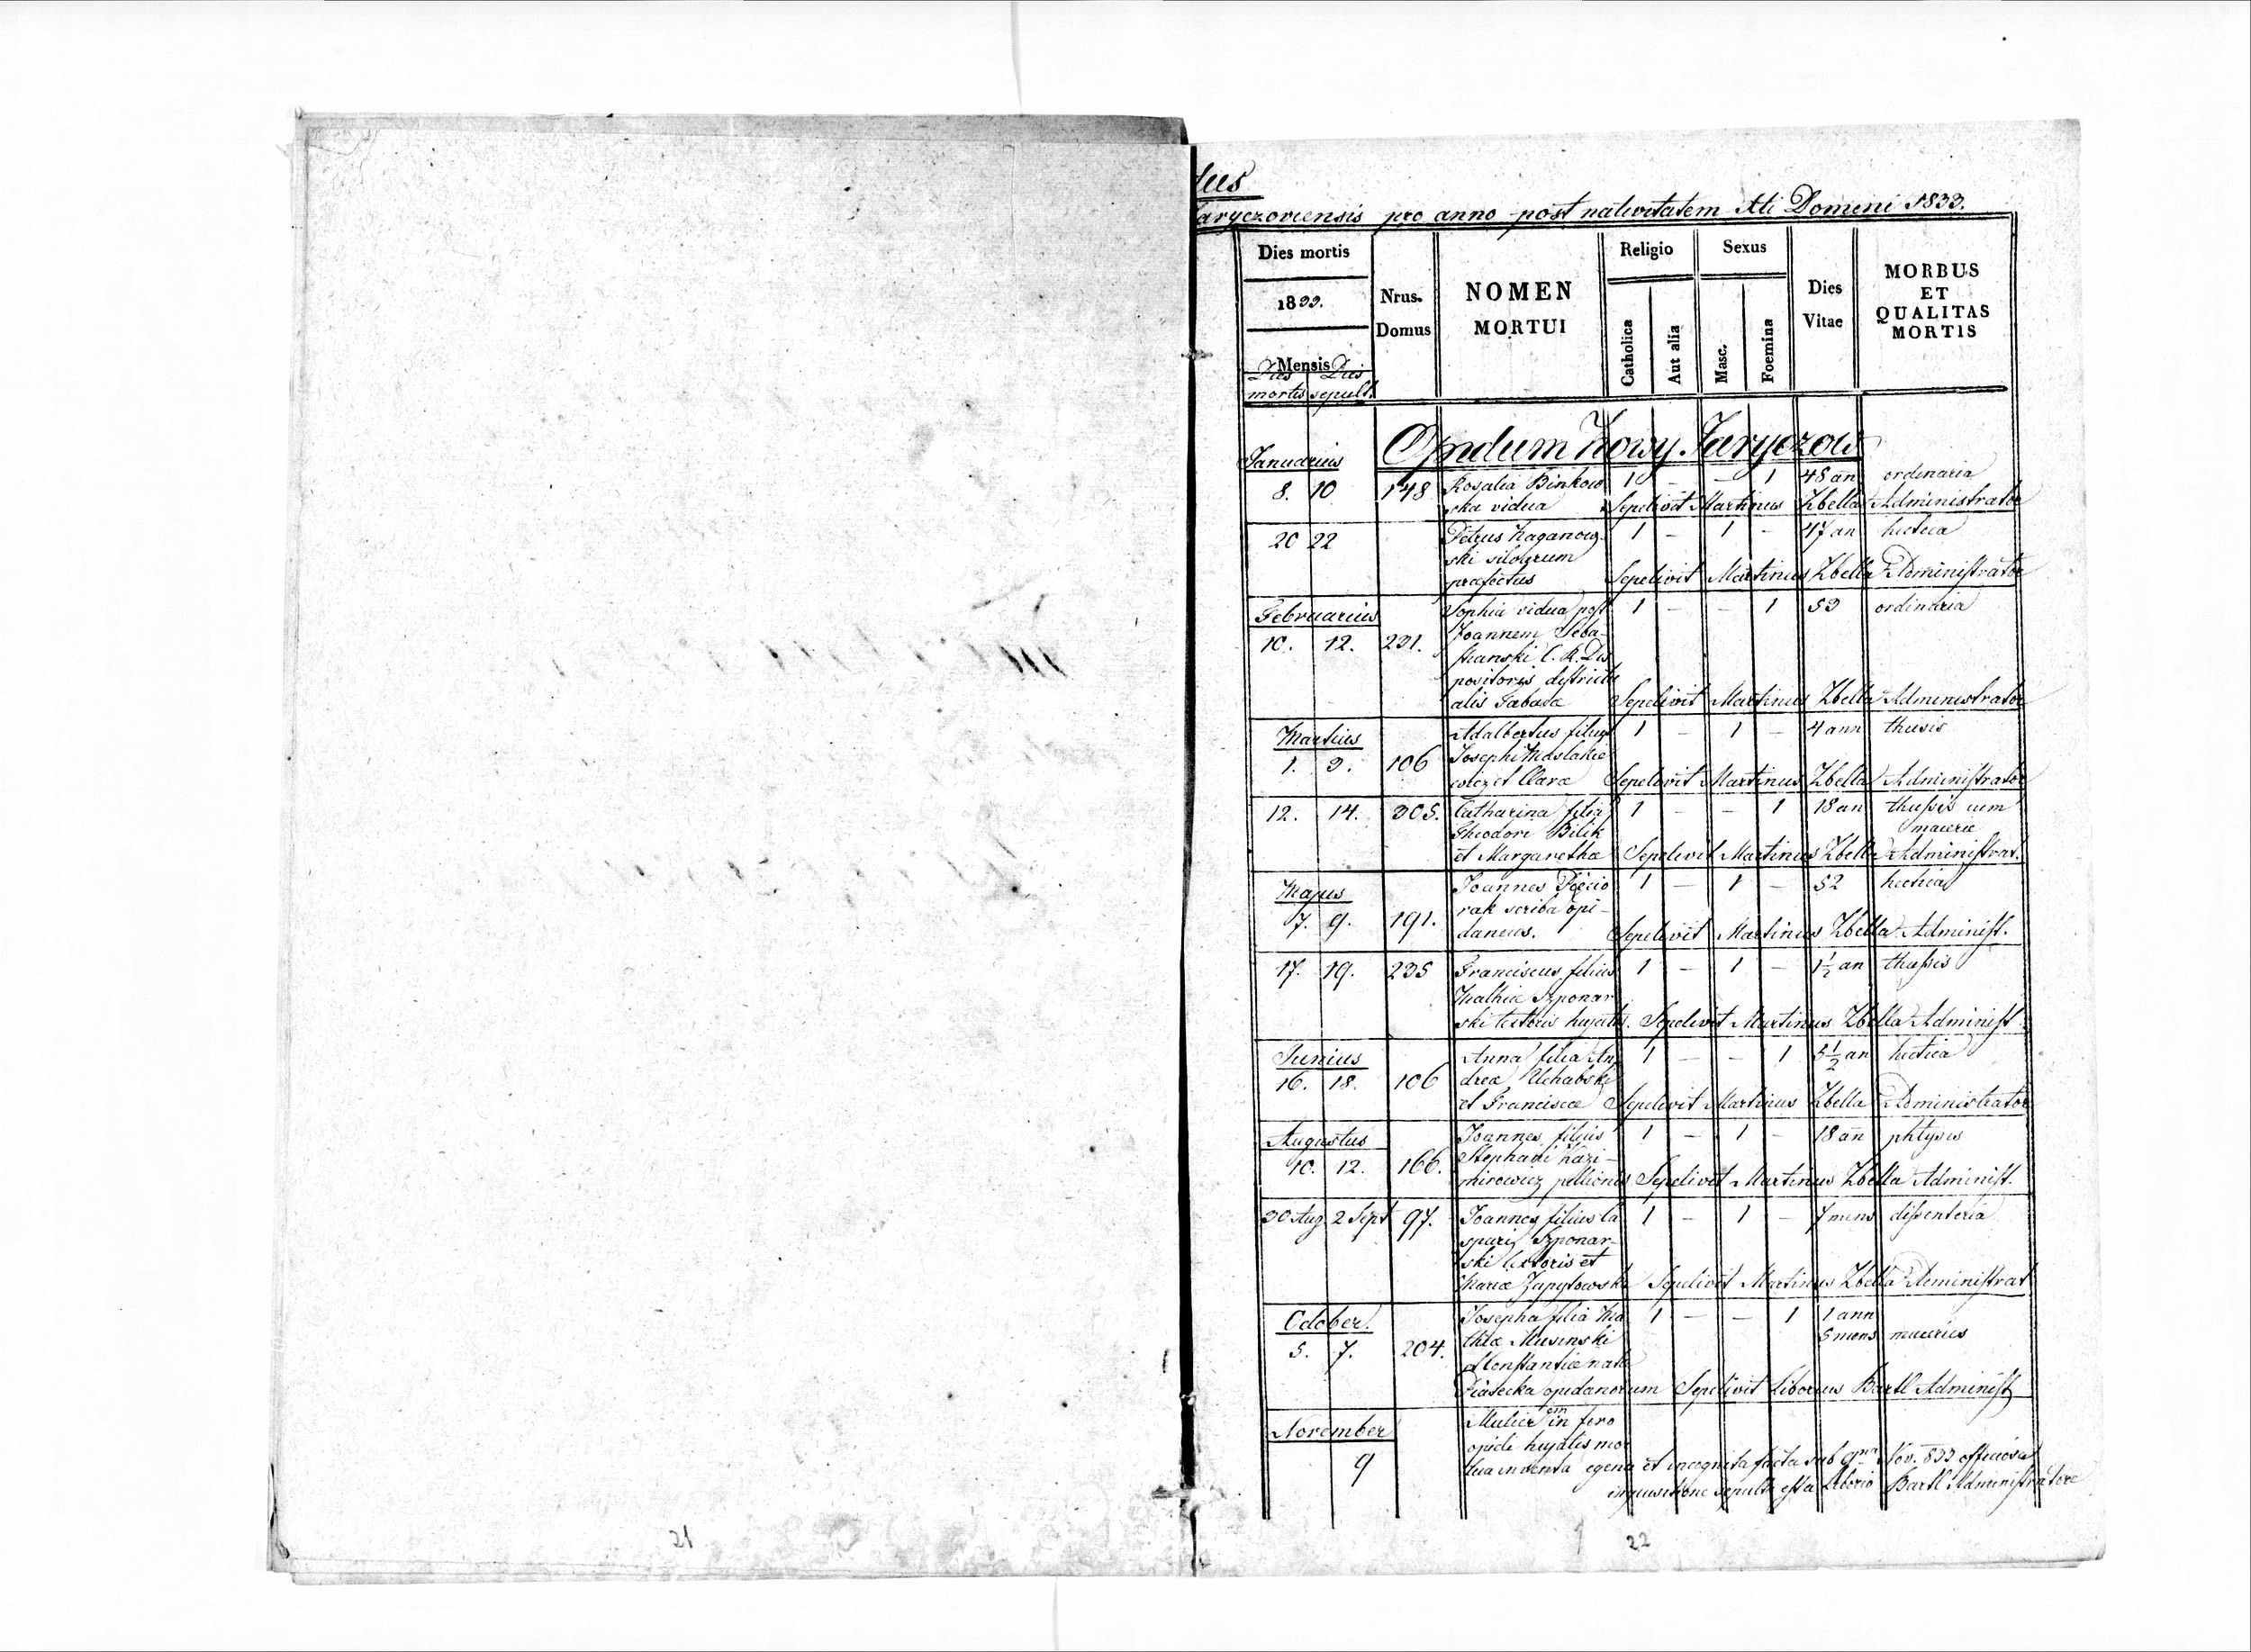 Jaryczoviensis pro anno post nativitatem Xti Domini 1833.
Dies mortis
1833.
Mensis
Dies mortis
Dies sepult.
Nrus. Domus
NOMEN MORTUI
Religio
Catholica
Aut alia
Sexus
Masc.
Foemina
Dies Vitae
MORBUS ET QUALITAS MORTIS
Opidum Nowy Jaryczow
Januarius
8. 10 148 Rosalia Binkow 1 - - 1 48 an ordinaria
ska vidua Sepelivit Martinus Zbella Administrator
20 22 Petrus Kaganow- 1 - 1 - 47 an hectica
ski silvarum
praefectus Sepelivit Martinus Zbella Administrator
Februarius Sophia vidua post 1 - - 1 53 ordinaria
10. 12. 231. Joannem Seba-
stianski C. R. Dis
positoris districtu
alis Tabaca Sepelivit Martinus Zbella Administrator
Martius Adalbertus filius 1 - 1 - 4 ann thusis
1. 3. 106 Josephi Maslakie
wicz et Clara Sepelivit Martinus Zbella Administrator
12. 14. 305. Catharina filia 1 - - 1 18 an thussis cum
Theodori Bilik macerie
et Margarethae Sepelivit Martinus Zbella Administrat.
Majus Joannes 1 - 1 - 52 hectica
7. 9. 191. rak scriba opi-
daneus. Sepelivit Martinus Zbella Administ.
17. 19. 235 Franciscus filius 1 - 1 - 1½ an thussis
Mathiae Szponar
ski textoris hujatis. Sepelivit Martinus Zbella Administ.
Junius Anna filia An 1 - - 1 5½ an hectica
16. 18. 106 dreae Uchabski
et Franciscae Sepelivit Martinus Zbella Administrator
Augustus Joannes filius 1 - 1 - 18 an phtysis
10. 12. 166. Stephani Kazi-
mirowicz pellionis Sepelivit Martinus Zbella Administ.
30 Aug 2 Sept 97. Joannes filius Ca 1 - 1 - 7 mens dissenteria
spari Szponar-
ski textoris et
Mariae Zapytowska Sepelivit Martinus Zbella Administrat
October. Josepha filia Ma 1 - - 1 1 ann
5. 7. 204. thiae Musinski 5 mens macries
et Constantiae nata
Piasecka opidanorum Sepelivit Liborius Bartl Administ
November Mulier in foro
9 opidi hujatis mor
tua inventa egena et incognita facta sub 9na Nov. 833 officiosa
inquisitione sepulta est a Liborio Bartl Administratore
21
22